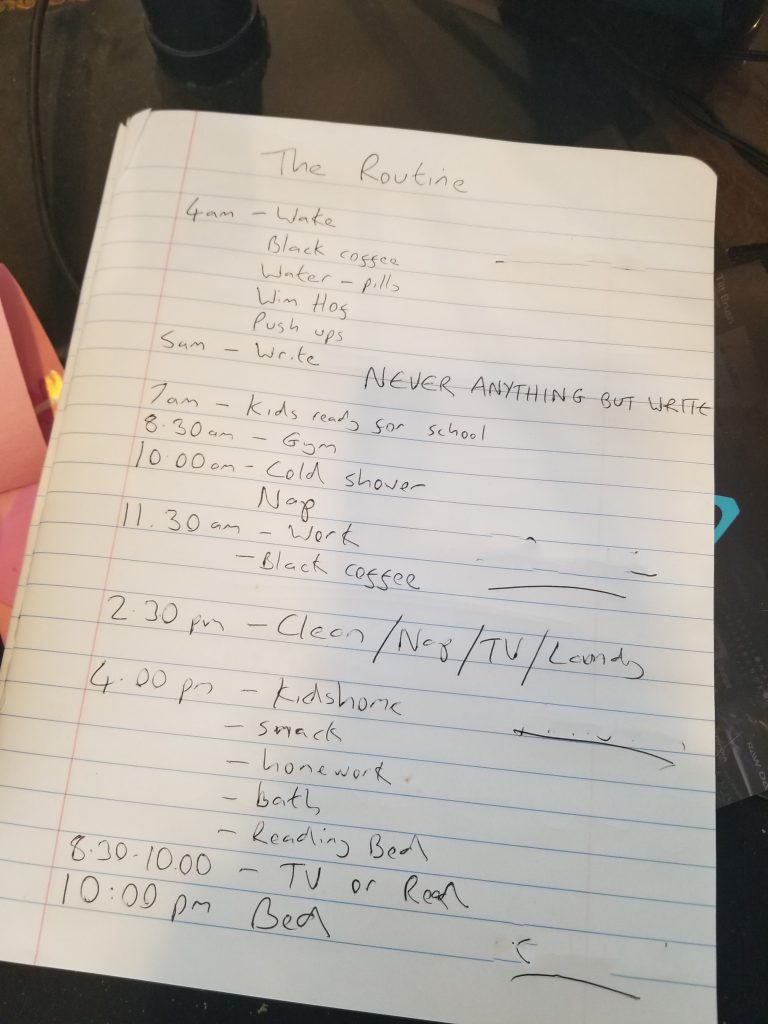 The Routine
4am - Wake
Black coffee
Water - pills
Wim Hof
Push ups
5am - Write
NEVER ANYTHING BUT WRITE
7am - Kids ready for school
8.30am - Gym
10.00am - Cold shower
Nap
11.30am - Work
- Black coffee
2.30pm - Clean/Nap/TV/Laundy
4.00pm - Kidshome
- smack
- homework
- Bath
- Reading Bed
8.30-10.00 - TV or Read
10:00pm Bed